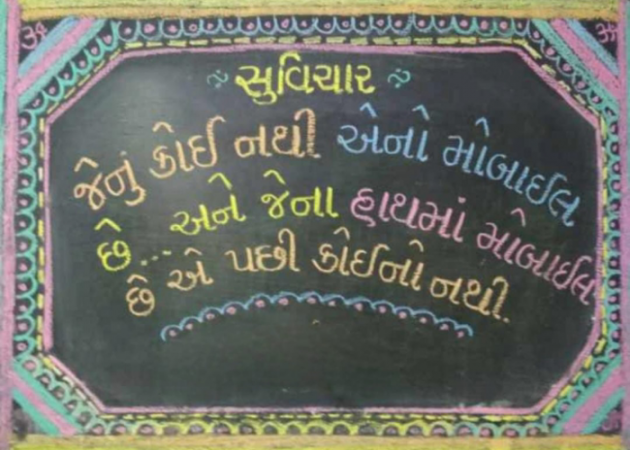 ૐ ૐ
~ સુવિચાર ~
જેનું કોઈ નથી એનો મોબાઈલ
છે... અને જેના હાથમાં મોબાઈલ
છે એ પછી કોઈનો નથી.